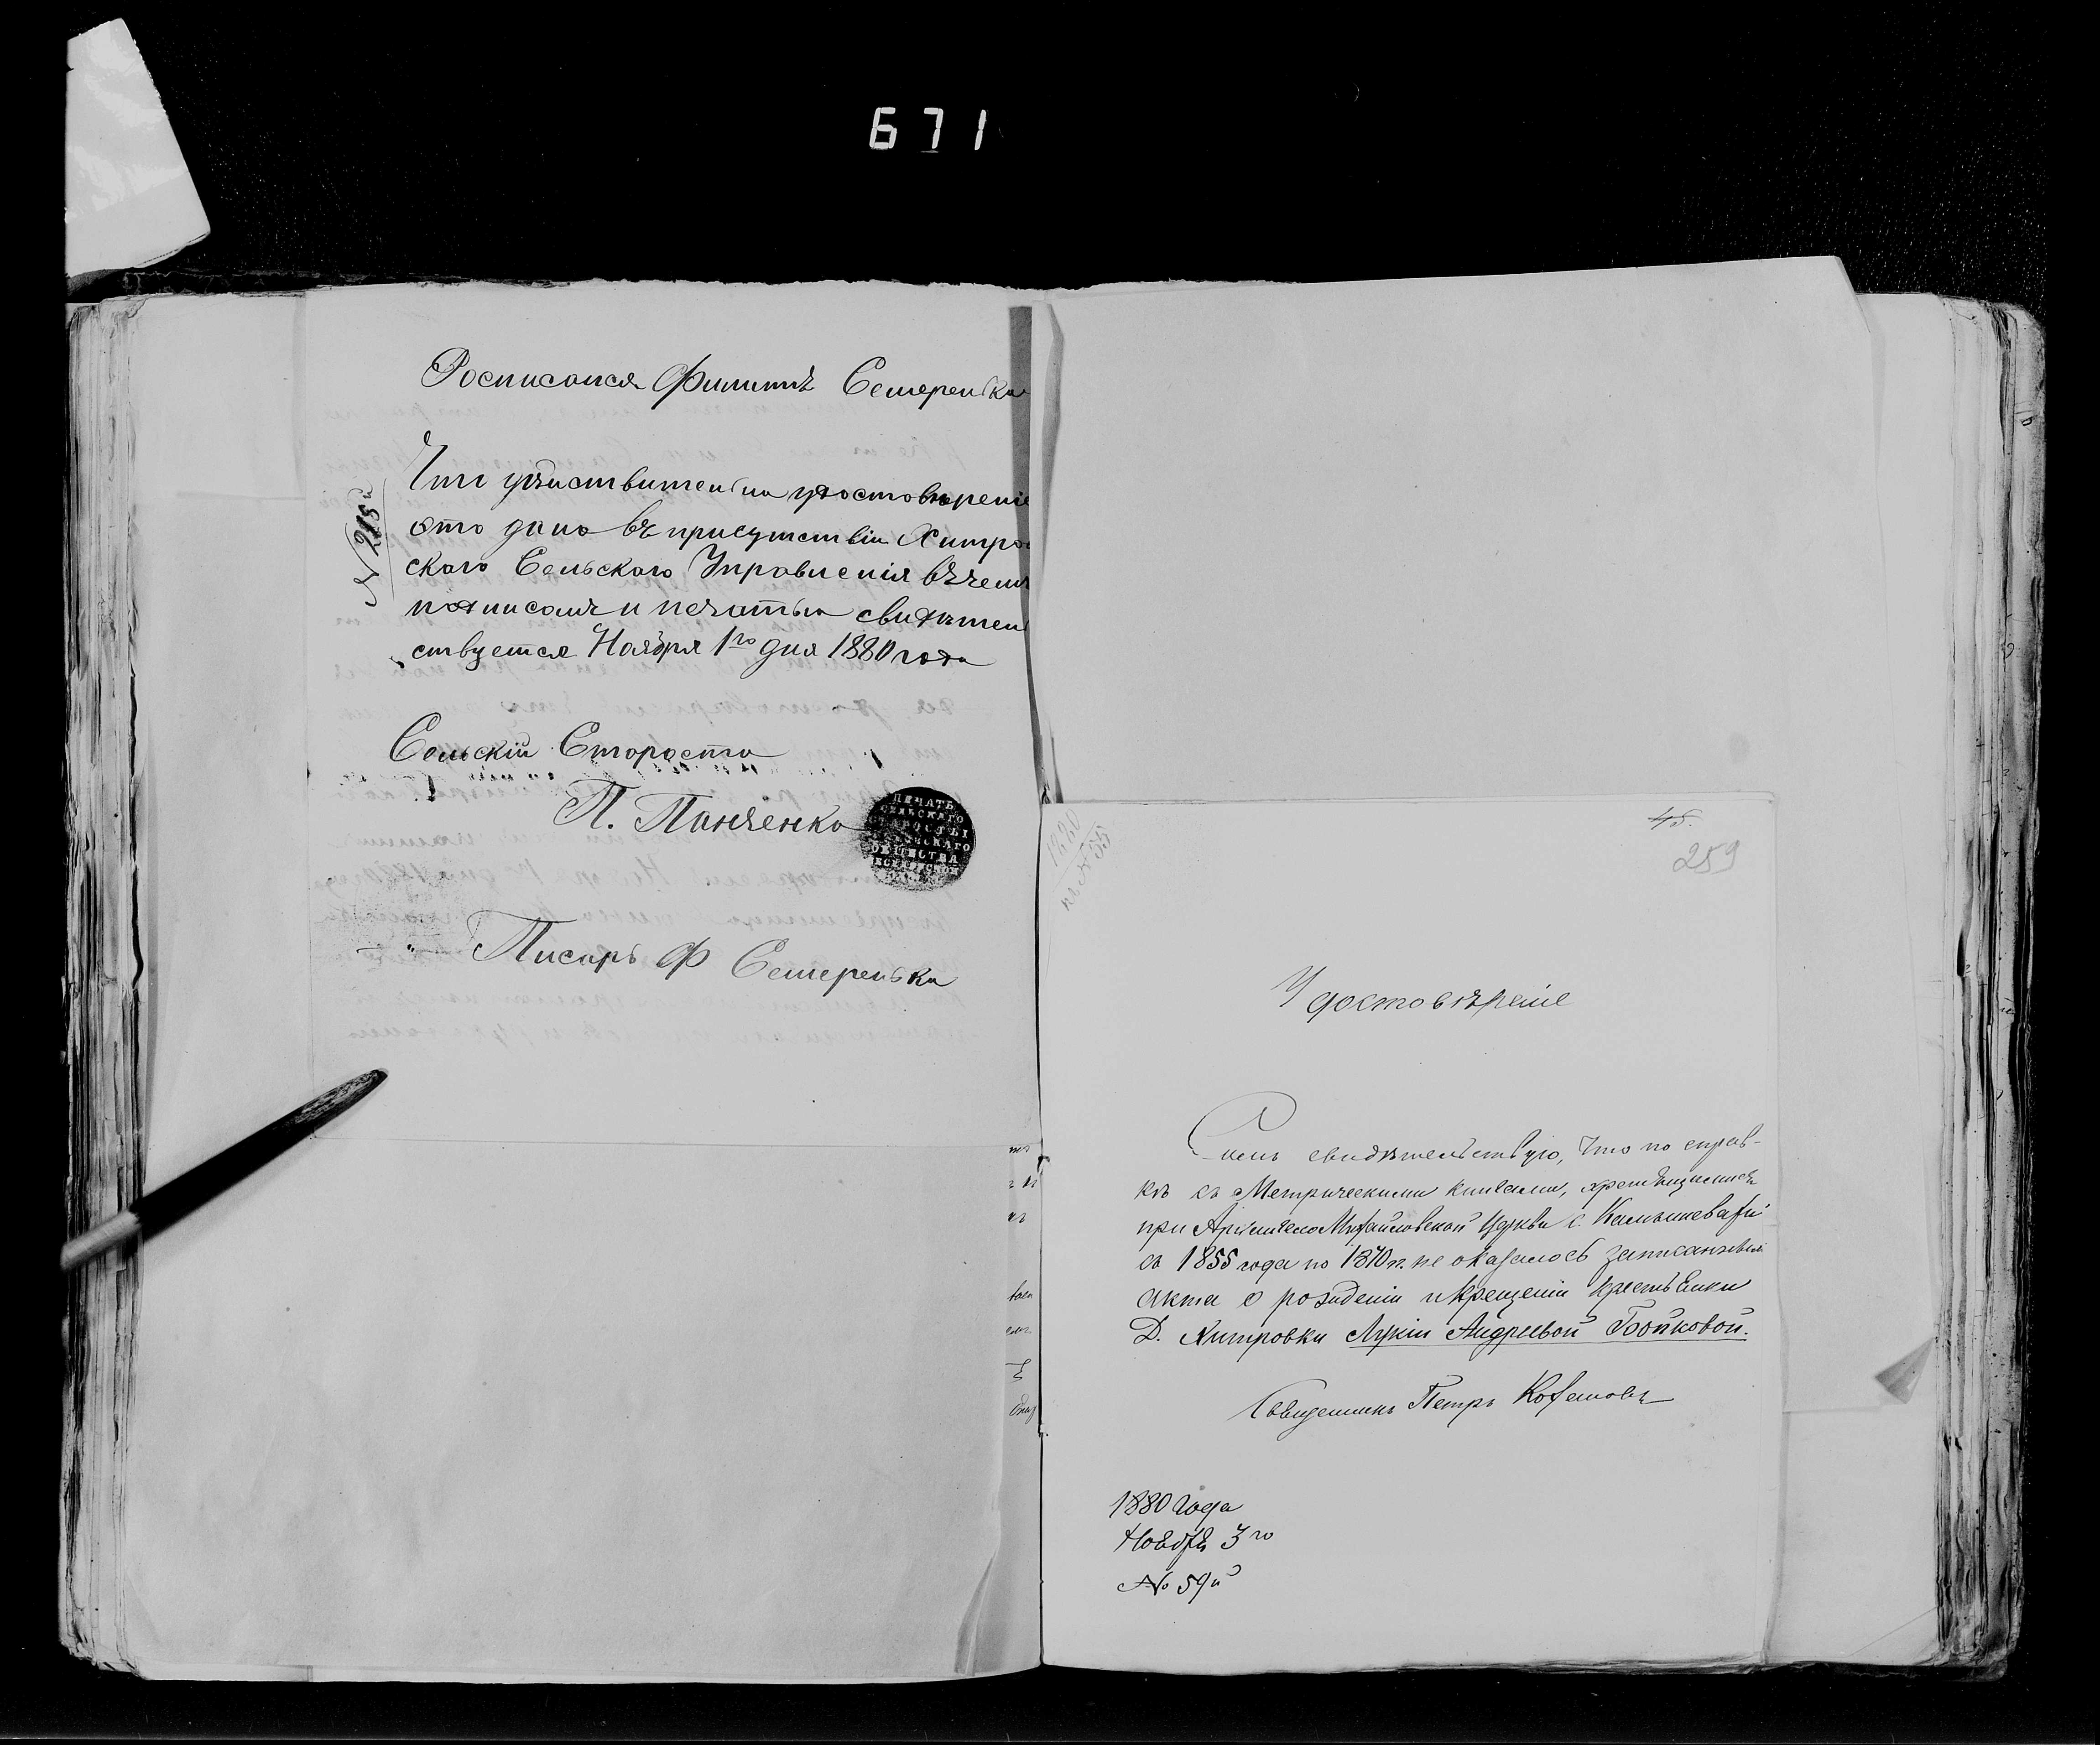 671
Росписался Филиппъ Семеренька
№ 215й
Что дѣйствительно удостовѣреніе
это дано въ присутствіи Хитров
ского Сельского Управленія въ чемъ
подписомъ и печатью свидѣтель
ствуется Ноября 1го дня 1880 года
Сельскій Староста
П. Панченко
ПЕЧАТЬ
СЕЛЬСКАГО
СТАРОСТЫ
ОБЩЕСТВА
Писарь Ф Семеренька
45.
259
Удостовѣреніе
Симъ свидѣтельствую, что по справ-
кѣ съ Метрическими книгами, хранящимися
при Архангело Михайловской Церкви с.
съ 1855 года по 1870 г. не оказалось записаннымъ
акта о рожденіи и крещеніи крестьянки
Д. Хитровки Лукіи Андреевой Бойковой.
Священникъ Петръ
1880 года
Ноября 3го
№ 59й